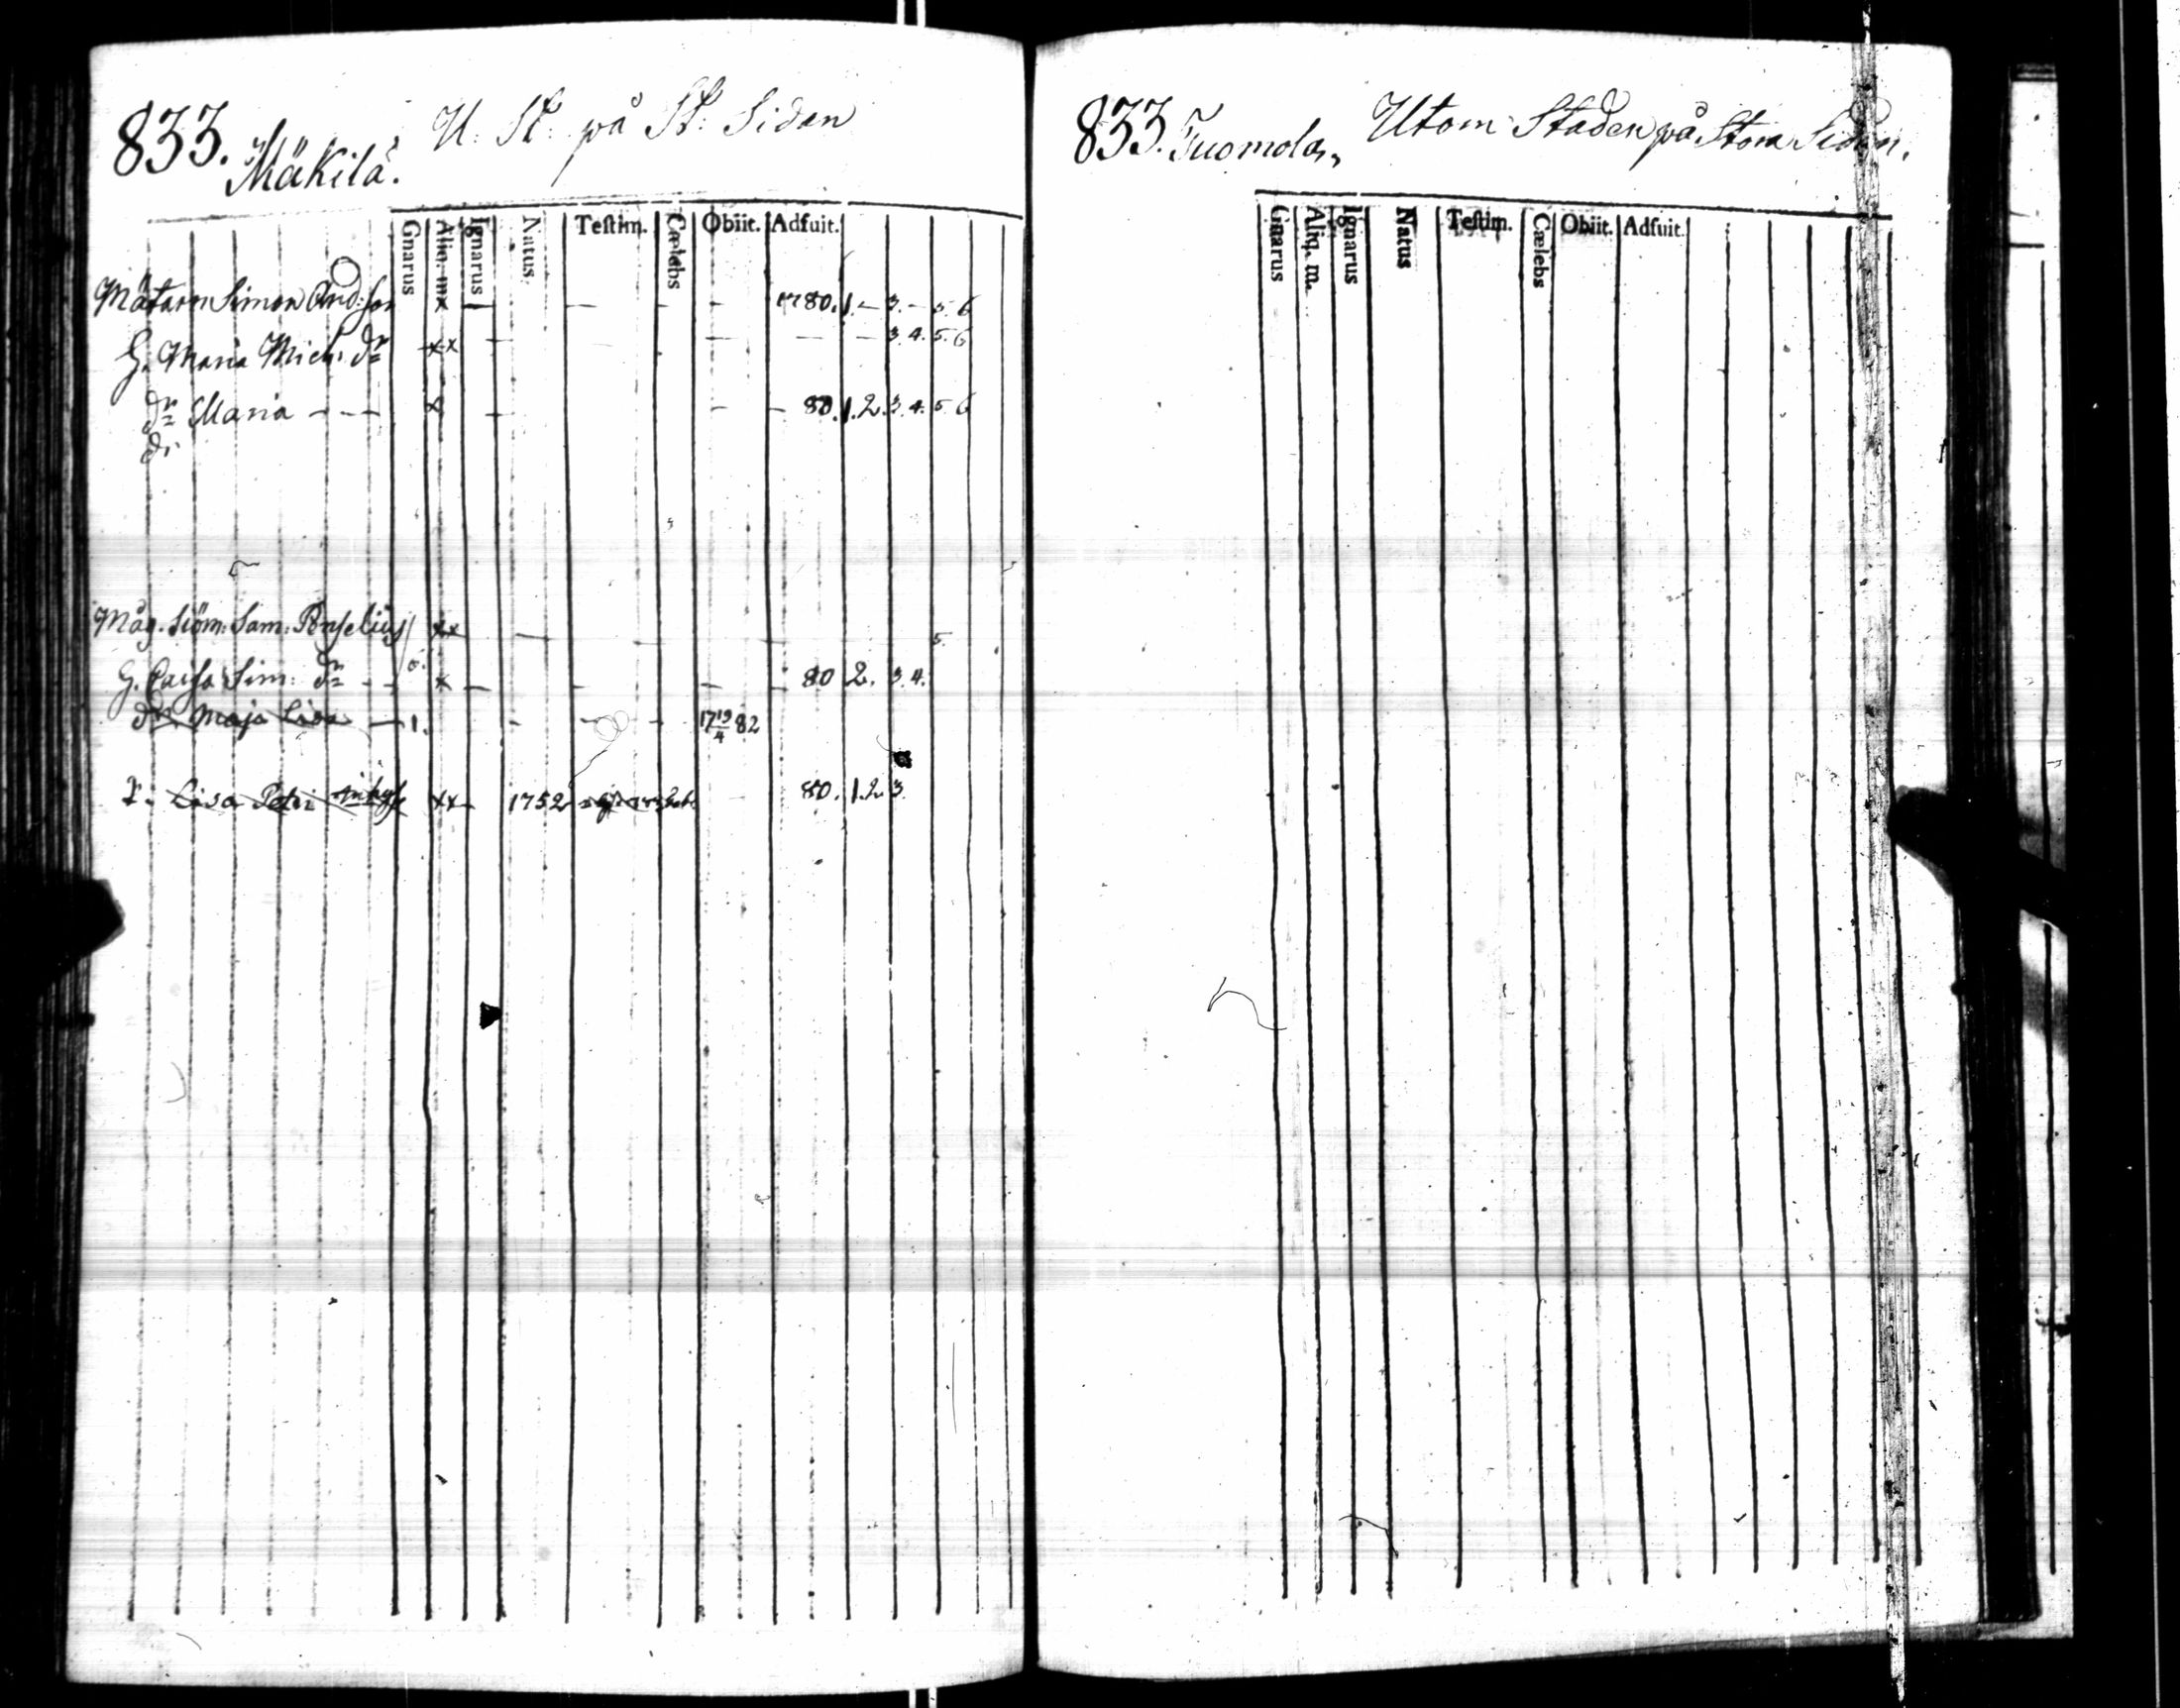 833. Mäkilä. U: St: på St: Sidan
Gnarus Aliq. m. Ignarus Natus. Testim. Cælebs Obiit. Adfuit.
Simon And:son x 1780. 1. – 3. – 5. 6
H. Maria Mich: dr xx 3. 4. 5. 6
dr Maria – – – x 80. 1. 2. 3. 4. 5. 6
d:
Måg. Siöm: Sam: xx 5.
H. Caisa Sim: dr x 80 2. 3. 4.
dr Maja Lisa – 1. 17 19/4 82
Lisa Petri xx 1752 80. 1. 2. 3.
833. Tuomola, Utom Staden på Stora Sidan.
Gnarus Aliq. m. Ignarus Natus Testim. Cælebs Obiit. Adfuit.